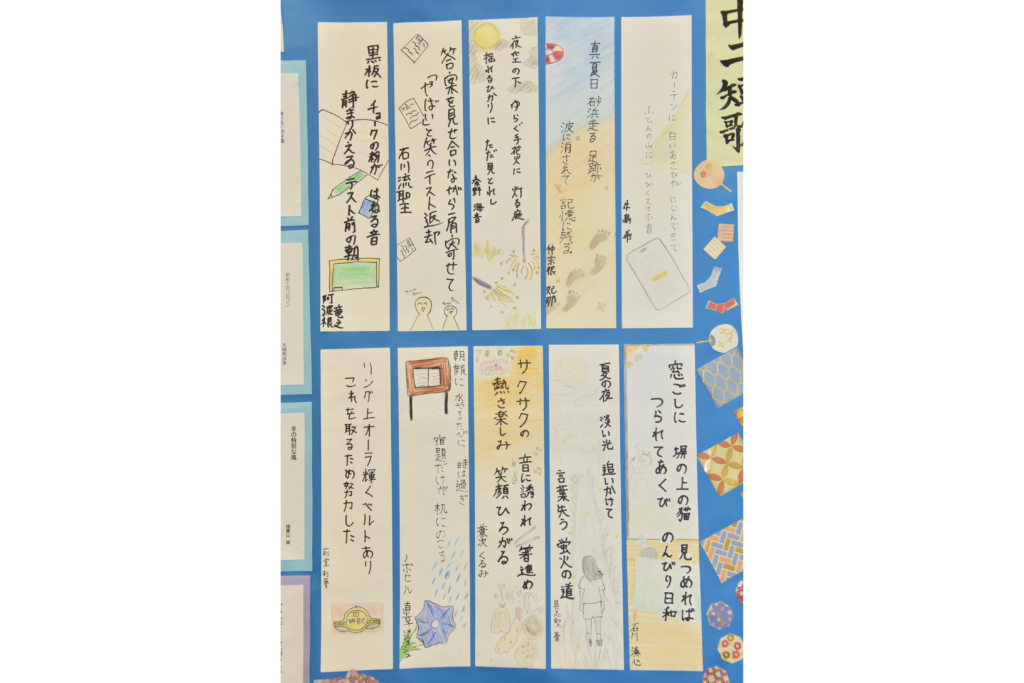 中二短歌
カーテンに 白いあさひが にじんできて
ふとんの山に ひびくスマホ音
真夏日 砂浜走る 足跡が
波に消されて 記憶に残る
仲宗根 妃那
夜空の下 ゆらぐ手花火に 灯る庭
揺れるひかりに ただ見とれし
海音
答案を見せ合いながら肩寄せて
「やばい」と笑うテスト返却
石川流聖
黒板に チョークの粉が はねる音
静まりかえる テスト前の朝
阿波根 竜之
窓ごしに 塀の上の猫 見つめれば
つられてあくび のんびり日和
石川
夏の夜 淡い光 追いかけて
言葉失う 蛍火の道
サクサクの 音に誘われ 箸進め
熱さ楽しみ 笑顔ひろがる
くるみ
朝顔に 水やるたびに 時は過ぎ
宿題だけが 机にのこる
ノボセル
リング上オーラ輝くベルトあり
これを取るため努力した
WBC
冬の特別な風